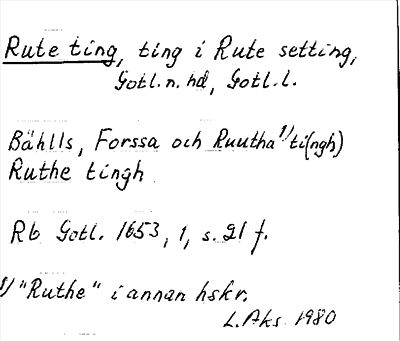 Rute ting, ting i Rute setting,
Gotl. n. hd, Gotl. l.
Bählls, Forssa och Ruutha 1) ti(ngh)
Ruthe tingh
Rb Gotl. 1653, 1, s. 21 f.
1) "Ruthe" i annan hskr.
L. Aks. 1980